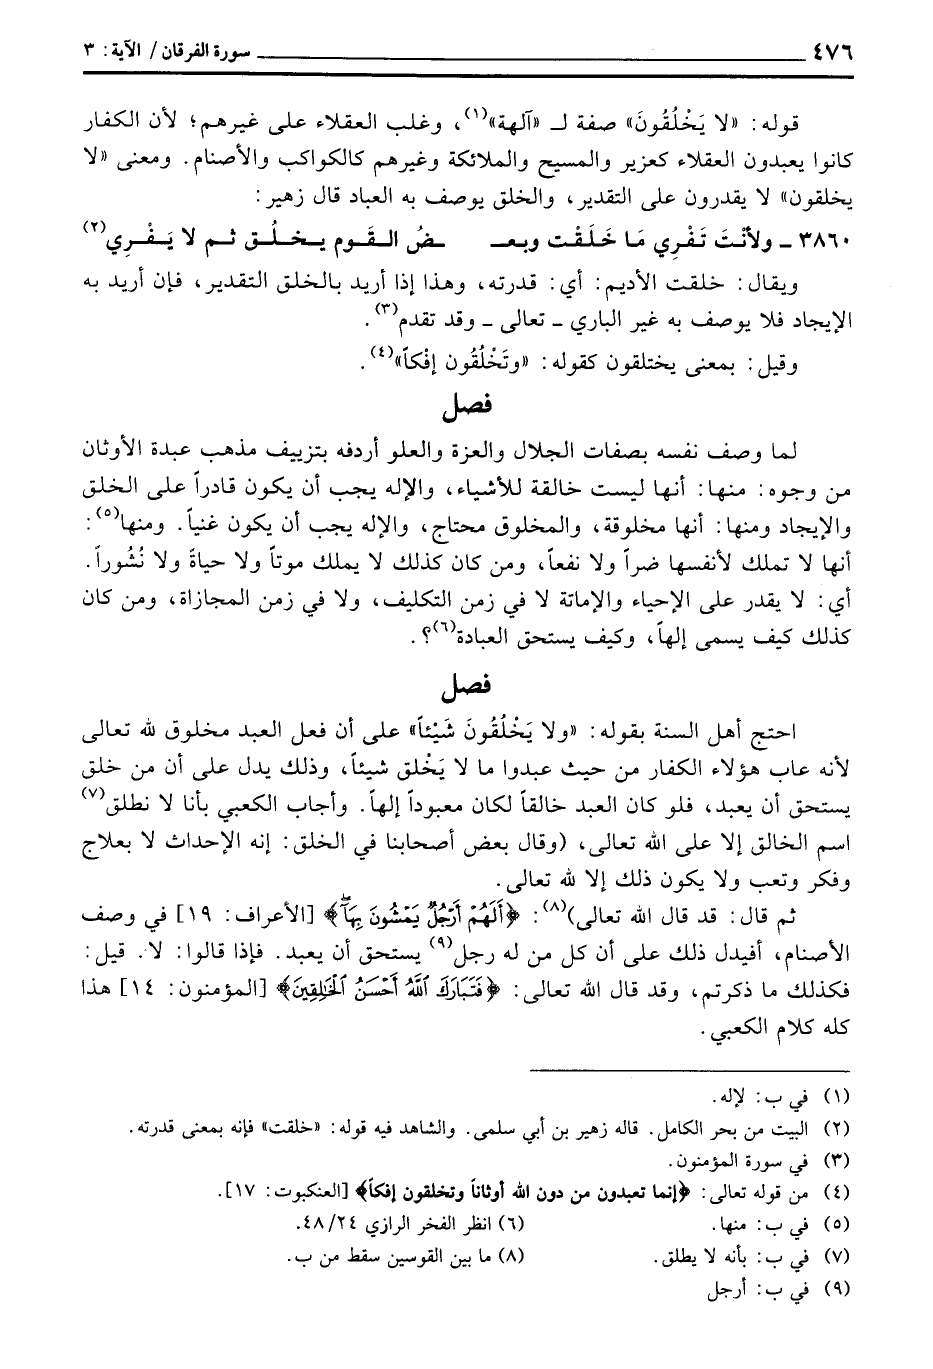 ٤٧٦ سورة الفرقان / الآية: ٣
قوله: «لا يَخْلُقُونَ» صفة لـ «آلهة»(١)، وغلب العقلاء على غيرهم؛ لأن الكفار
كانوا يعبدون العقلاء كعزير والمسيح والملائكة وغيرهم كالكواكب والأصنام. ومعنى «لا
يخلقون» لا يقدرون على التقدير، والخلق يوصف به العباد قال زهير:
٣٨٦٠ ـ ولأنْتَ تَفْرِي مَا خَلَقْت وبعـ ـضُ القَوم يخلُق ثم لا يَفْرِي(٢)
ويقال: خلقت الأديم: أي: قدرته، وهذا إذا أريد بالخلق التقدير، فإن أريد به
الإيجاد فلا يوصف به غير الباري ـ تعالى ـ وقد تقدم(٣).
وقيل: بمعنى يختلقون كقوله: «وتَخْلُقُون إفْكاً»(٤).
فصل
لما وصف نفسه بصفات الجلال والعزة والعلو أردفه بتزييف مذهب عبدة الأوثان
من وجوه: منها: أنها ليست خالقة للأشياء، والإله يجب أن يكون قادراً على الخلق
والإيجاد ومنها: أنها مخلوقة، والمخلوق محتاج، والإله يجب أن يكون غنياً. ومنها(٥):
أنها لا تملك لأنفسها ضراً ولا نفعاً، ومن كان كذلك لا يملك موتاً ولا حياةً ولا نُشُوراً.
أي: لا يقدر على الإحياء والإماتة لا في زمن التكليف، ولا في زمن المجازاة، ومن كان
كذلك كيف يسمى إلهاً، وكيف يستحق العبادة(٦)؟.
فصل
احتج أهل السنة بقوله: «ولا يَخْلُقُونَ شَيْئاً» على أن فعل العبد مخلوق لله تعالى
لأنه عاب هؤلاء الكفار من حيث عبدوا ما لا يَخْلق شيئاً، وذلك يدل على أن من خلق
يستحق أن يعبد، فلو كان العبد خالقاً لكان معبوداً إلهاً. وأجاب الكعبي بأنا لا نطلق(٧)
اسم الخالق إلا على الله تعالى، (وقال بعض أصحابنا في الخلق: إنه الإحداث لا بعلاج
وفكر وتعب ولا يكون ذلك إلا لله تعالى.
ثم قال: قد قال الله تعالى)(٨): ﴿أَلَهُمْ أَرْجُلٌ يَمْشُونَ بِهَآ﴾ [الأعراف: ١٩] في وصف
الأصنام، أفيدل ذلك على أن كل من له رجل(٩) يستحق أن يعبد. فإذا قالوا: لا. قيل:
فكذلك ما ذكرتم، وقد قال الله تعالى: ﴿فَتَبَارَكَ ٱللَّهُ أَحْسَنُ ٱلْخَالِقِينَ﴾ [المؤمنون: ١٤] هذا
كله كلام الكعبي.
(١) في ب: لإله.
(٢) البيت من بحر الكامل. قاله زهير بن أبي سلمى. والشاهد فيه قوله: «خلقت» فإنه بمعنى قدرته.
(٣) في سورة المؤمنون.
(٤) من قوله تعالى: ﴿إنما تعبدون من دون الله أوثاناً وتخلقون إفكاً﴾ [العنكبوت: ١٧].
(٥) في ب: منها. (٦) انظر الفخر الرازي ٢٤/ ٤٨.
(٧) في ب: بأنه لا يطلق. (٨) ما بين القوسين سقط من ب.
(٩) في ب: أرجل